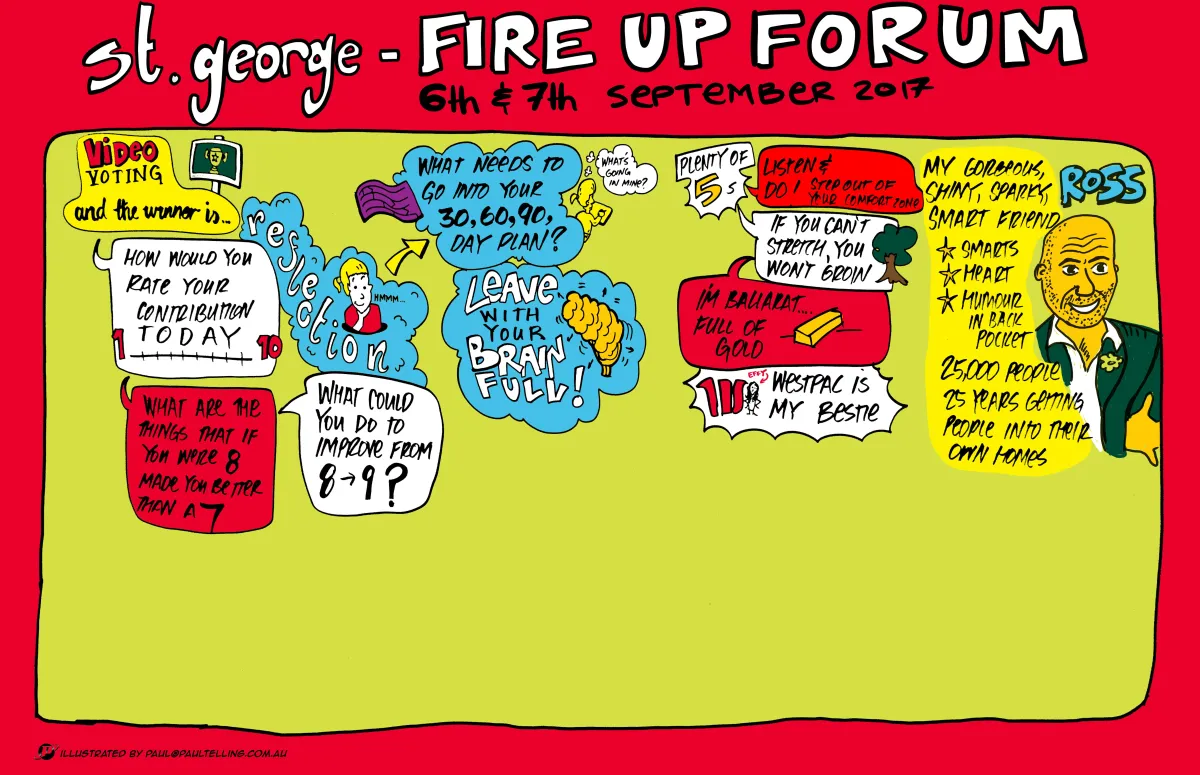 st. george - FIRE UP FORUM
6th & 7th SEPTEMBER 2017
VIDEO
VOTING
and the winner is...
HOW WOULD YOU
RATE YOUR
CONTRIBUTION
TODAY
1 10
WHAT ARE THE
THINGS THAT IF
YOU WERE 8
MADE YOU BETTER
THAN A 7
reflection
HMMM...
WHAT COULD
YOU DO TO
IMPROVE FROM
8→9?
WHAT NEEDS TO
GO INTO YOUR
30, 60, 90,
DAY PLAN?
WHAT'S
GOING
IN MINE?
LEAVE
WITH
YOUR
BRAIN
FULL!
PLENTY OF
5s
LISTEN &
DO! STEP OUT OF
YOUR COMFORT ZONE
IF YOU CAN'T
STRETCH, YOU
WON'T GROW
I'M BALLARAT....
FULL OF
GOLD
WESTPAC IS
MY BESTIE
MY GORGEOUS,
SHINY, SPARKY,
SMART FRIEND
ROSS
SMARTS
HEART
HUMOUR
IN BACK
POCKET
25,000 PEOPLE
25 YEARS GETTING
PEOPLE INTO THEIR
OWN HOMES
ILLUSTRATED BY PAUL@PAULTELLING.COM.AU